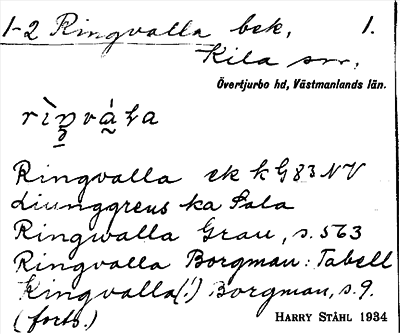 1-2 Ringvalla bek. 1.
Kila sn,
Övertjurbo hd, Västmanlands län.
rìŋvála
Ringvalla ek k G83 NV
Ljunggrens ka Sala
Ringwalla Grau, s. 563
Ringvalla Borgman: Tabell
Ringvalla(!) Borgman, s. 9.
(forts.) HARRY STÅHL 1934